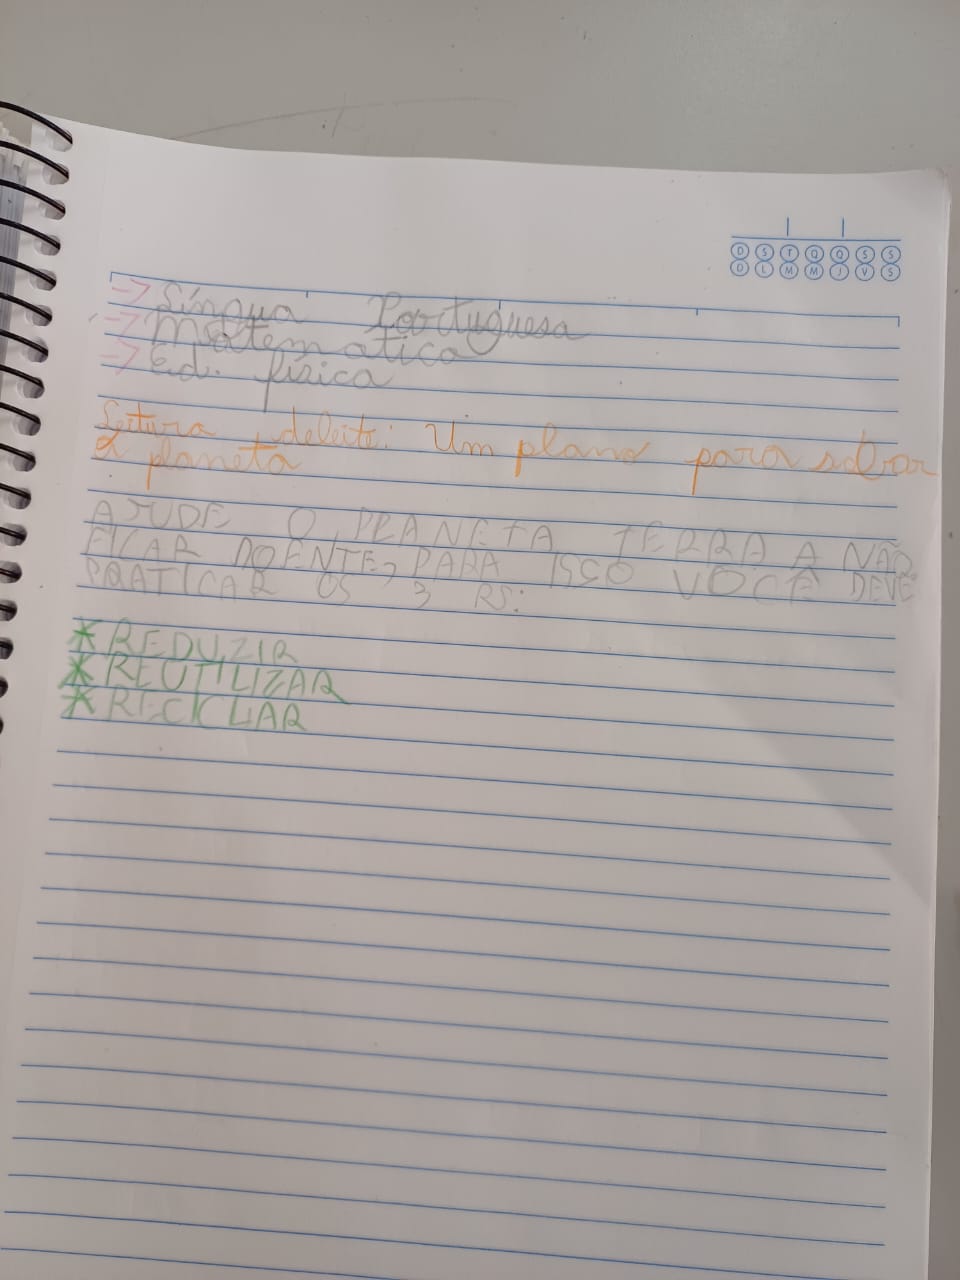 D S T Q Q S S
D L M M J V S
-> Língua Portuguesa
-> Matematica
-> Ed. física
Leitura deleite: Um plano para salvar
o planeta
AJUDE O PLANETA TERRA A NÃO
FICAR DOENTE, PARA ISSO VOCÊ DEVE
PRATICAR OS 3 RS:
* REDUZIR
* REUTILIZAR
* RECICLAR